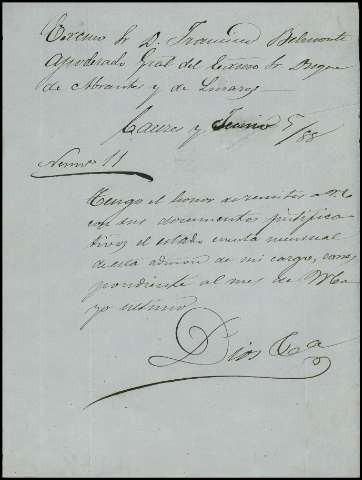 Excmo Sr D. Francisco Belmonte
Apoderado Gral del Excmo Sr Duque
de Abrantes y de Linares
Caceres y Junio 5/88
Numo 11
Tengo el honor de remitir a V.
con sus documentos justifica-
tivos el estado cuenta mensual
de esta admon de mi cargo, corres
pondiente al mes de Ma-
yo ultimo
Dios &a